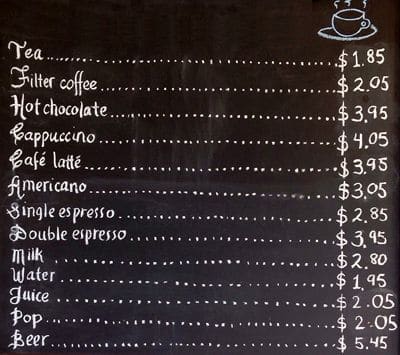 Tea.......................................$ 1.85
Filter coffee.......................................$ 2.05
Hot chocolate.......................................$3,95
Cappuccino.......................................$ 4.05
Café latté.......................................$3,95
Americano.......................................$3.05
Single espresso.......................................$ 2.85
Double espresso.......................................$ 3,95
Milk.......................................$ 2.80
Water.......................................$ 1,95
Juice.......................................$ 2.05
Pop.......................................$ 2.05
Beer.......................................$ 5.45